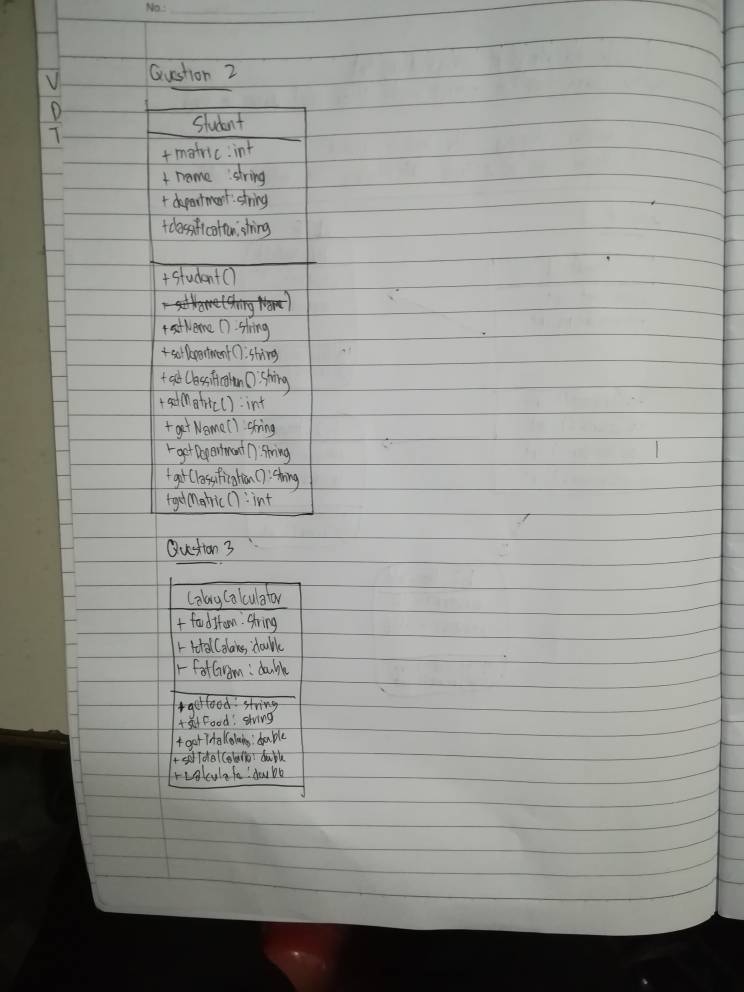 No.:
Question 2
V
D
T
Student
+ matric : int
+ name : string
+ department : string
+ classification : string
+ Student()
+ setName() : string
+ setDepartment() : string
+ setClassification() : string
+ setMatric() : int
+ getName() : string
+ getDepartment() : string
+ getClassification() : string
+ getMatric() : int
Question 3
CaloryCalculator
+ foodItem : string
+ totalCalories : double
+ fatGram : double
+ getFood : string
+ setFood : string
+ getTotalCalories : double
+ setTotalCalories : double
+ calculate : double